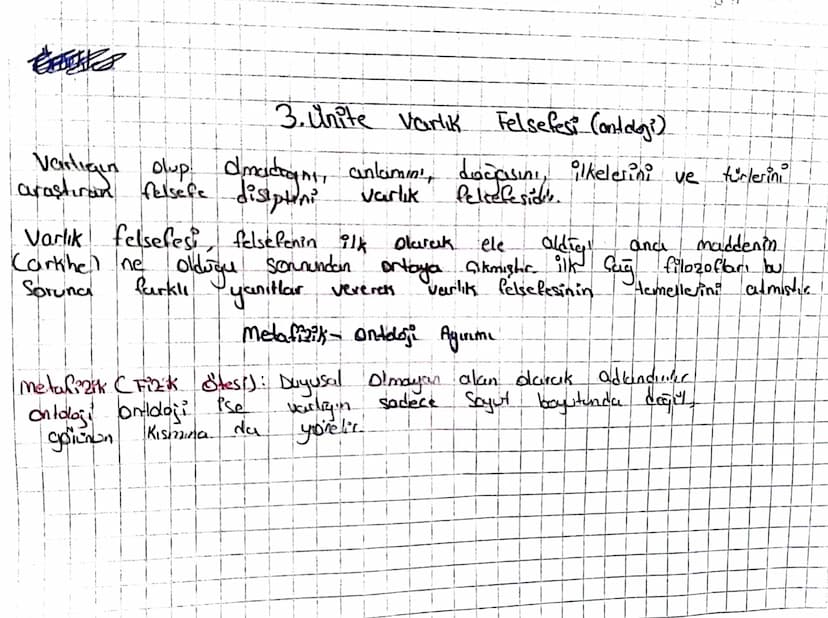 3. Ünite Varlık Felsefesi (ontoloji)
Varlığın olup olmadığını, anlamını, doğasını, ilkelerini ve türlerini
araştıran felsefe disiplini varlık felsefesidir.
Varlık felsefesi, felsefenin ilk olarak ele aldığı ana maddenin
(arkhe) ne olduğu sorunundan ortaya çıkmıştır ilk Çağ filozofları bu
Soruna farklı yanıtlar vererek varlık felsefesinin temellerini atmıştır.
Metafizik - Ontoloji Ayrımı
metafizik (Fizik Ötesi): Duyusal Olmayan alan olarak adlandırılır
ontoloji ontoloji ise varlığın sadece Soyut boyutunda değil,
görünen Kısmına da yönelir.